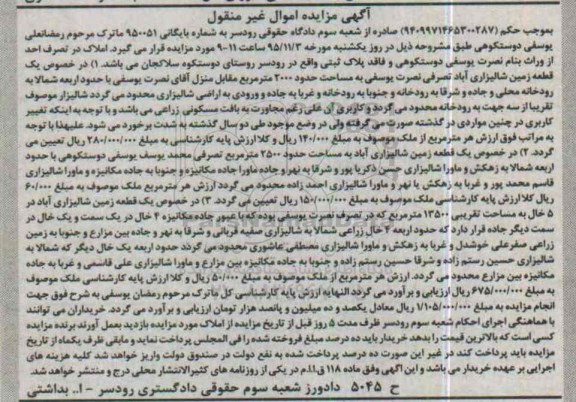 آگهی مزایده اموال غیر منقول
بموجب حکم (۹۴۰۹۹۷۱۴۶۵۳۰۰۲۸۷) صادره از شعبه سوم دادگاه حقوقی رودسر به شماره بایگانی ۹۵۰۰۵۱ ماترک مرحوم رمضانعلی
یوسفی دوستکوهی طبق مشروحه ذیل در روز یکشنبه مورخه ۹۵/۱۱/۳ ساعت ۱۱-۹ مورد مزایده قرار می گیرد. املاک در تصرف احد
از وراث بنام نصرت یوسفی دوستکوهی و فاقد پلاک ثبتی واقع در رودسر روستای دوستکوه سلاکجان می باشد. ۱) در خصوص یک
قطعه زمین شالیزاری آباد تصرفی نصرت یوسفی به مساحت حدود ۲۰۰۰ مترمربع مقابل منزل آقای نصرت یوسفی با حدود اربعه شمالا به
رودخانه محلی و جاده و شرقا به رودخانه و جنوبا به رودخانه و غربا به جاده و ورودی به اراضی شالیزاری محدود می گردد شالیزار موصوف
تقریبا از سه جهت به رودخانه محدود می گردد و کاربری آن علی رغم مجاورت به بافت مسکونی زراعی می باشد و با توجه به اینکه تغییر
کاربری در چنین مواردی در گذشته صورت می گرفته ولی در وضع موجود طی دو سال گذشته به شدت برخورد می شود. علیهذا با توجه
به مراتب فوق ارزش هر مترمربع از ملک موصوف به مبلغ ۱۴۰/۰۰۰ ریال و کلا ارزش پایه کارشناسی به مبلغ ۲۸۰/۰۰۰/۰۰۰ ریال تعیین می
گردد. ۲) در خصوص یک قطعه زمین شالیزاری آباد به مساحت حدود ۲۵۰۰ مترمربع تصرفی محمد یوسف یوسفی دوستکوهی با حدود
اربعه شمالا به زهکش و ماورا شالیزاری حسن ذکریا پور و شرقا به نهر و جاده ماورا جاده مکانیزه و جنوبا به جاده مکانیزه و ماورا شالیزاری
قاسم محمد پور و غربا به زهکش یا نهر و ماورا شالیزاری احمد زاده محدود می گردد ارزش هر مترمربع ملک موصوف به مبلغ ۶۰/۰۰۰
ریال کلا ارزش پایه کارشناسی ملک موصوف به مبلغ ۱۵۰/۰۰۰/۰۰۰ ریال تعیین می گردد. ۳) در خصوص یک قطعه زمین شالیزاری آباد در
۵ خال به مساحت تقریبی ۱۳۵۰۰ مترمربع که در تصرف نصرت یوسفی بوده که با عبور جاده مکانیزه ۴ خال در یک سمت و یک خال در
سمت دیگر جاده قرار دارد که حدود اربعه ۴ خال زراعی شمالا به شالیزاری صفیه قربانی و شرقا به نهر و جاده بین مزارع و جنوبا به زمین
زراعی صفرعلی خوشدل و غربا به زهکش و ماورا شالیزاری مصطفی عاشوری محدود می گردد حدود اربعه یک خال دیگر که شمالا به
شالیزاری حسین رستم زاده و شرقا حسین رستم زاده و جنوبا به جاده مکانیزه بین مزارع و ماورا شالیزاری علی قاسمی و غربا به جاده
مکانیزه بین مزارع محدود می گردد. ارزش هر مترمربع از ملک موصوف به مبلغ ۵۰/۰۰۰ ریال و کلا ارزش پایه کارشناسی ملک موصوف
به مبلغ ۶۷۵/۰۰۰/۰۰۰ ریال ارزیابی و برآورد می گردد النهایه ارزش پایه کارشناسی کل ماترک مرحوم رمضان یوسفی به شرح فوق جهت
انجام مزایده به مبلغ ۱/۱۰۵/۰۰۰/۰۰۰ ریال معادل یکصد و ده میلیون و پانصد هزار تومان ارزیابی و برآورد می گردد. خریداران می توانند
با هماهنگی اجرای احکام شعبه سوم رودسر ظرف مدت ۵ روز قبل از تاریخ مزایده از املاک مورد مزایده بازدید بعمل آورند برنده مزایده
کسی است که بالاترین قیمت را بدهد خریدار باید ده درصد مبلغ فروخته شده را فی المجلس پرداخت نماید و مابقی ظرف یکماه از تاریخ
مزایده باید پرداخت کند در غیر این صورت ده درصد پرداخت شده به نفع دولت در صندوق دولت واریز خواهد شد. کلیه هزینه های
اجرایی بر عهده خریدار می باشد و این آگهی وفق ماده ۱۱۸ ق.ا.ا.م در یکی از روزنامه های کثیرالانتشار محلی درج و منتشر خواهد شد.
ح ۵۰۴۵ دادورز شعبه سوم حقوقی دادگستری رودسر - ا.. بداشتی